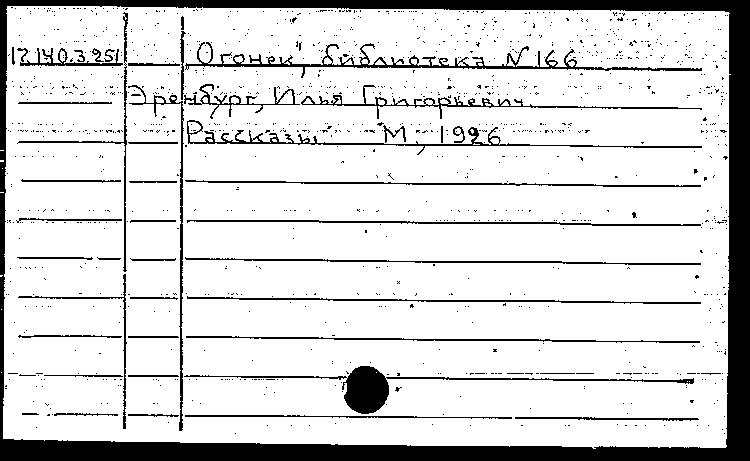 17.140.3.251 Огонек, библиотека N 166
Эренбург, Илья Григорьевич
Рассказы М, 1926